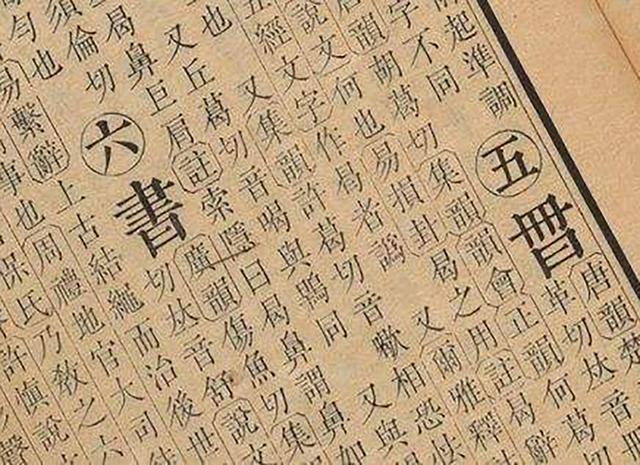 唐韻楚
革切𠀤音
起準調
五
字不同
唐韻胡葛切集韻韻會正韻何葛
說文何也易損卦曷之用註曷辭
五經文字作曷者譌 又爾雅釋
又集韻許葛切音歇相恐怯
也 又丘葛切音喝與鶡同 又與
曷鼻巨肩註索隱曰曷鼻謂鼻如
倫切
六
書
廣韻傷魚切集
切𠀤音舒說文
易繫辭上古結繩而治後世
事也周禮地官大司徒
保氏乃敎之六
許慎說文